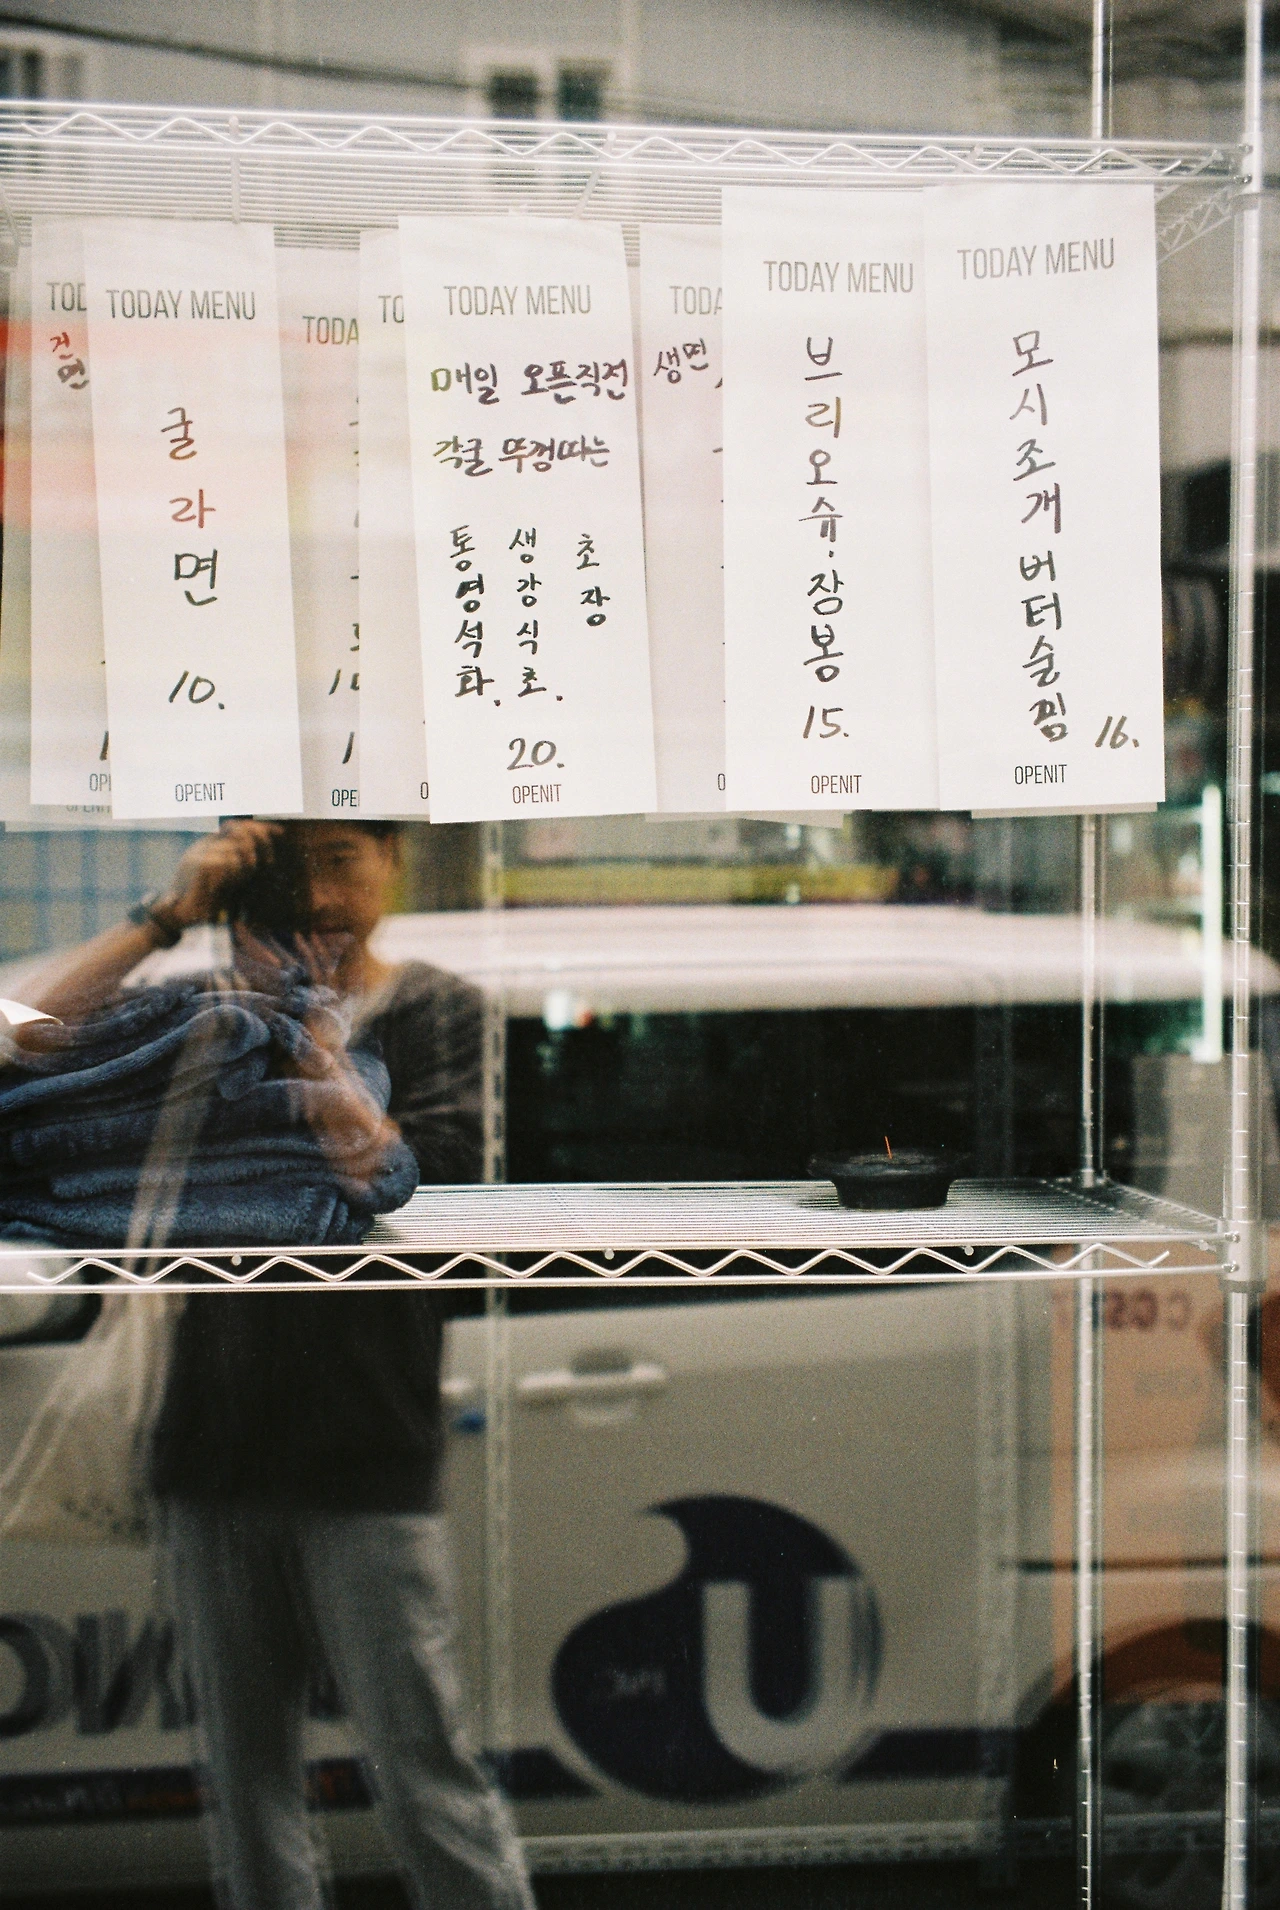 TODAY MENU
굴라면
10.
OPENIT
TODAY MENU
매일 오픈직전
각굴 뚜껑따는
통영석화.
생강식초.
초장
20.
OPENIT
생면
TODAY MENU
브리오슈·잠봉
15.
OPENIT
TODAY MENU
모시조개버터술찜
16.
OPENIT
건면
U